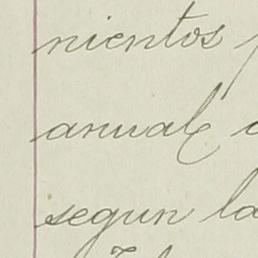 nientos
anual
segun la